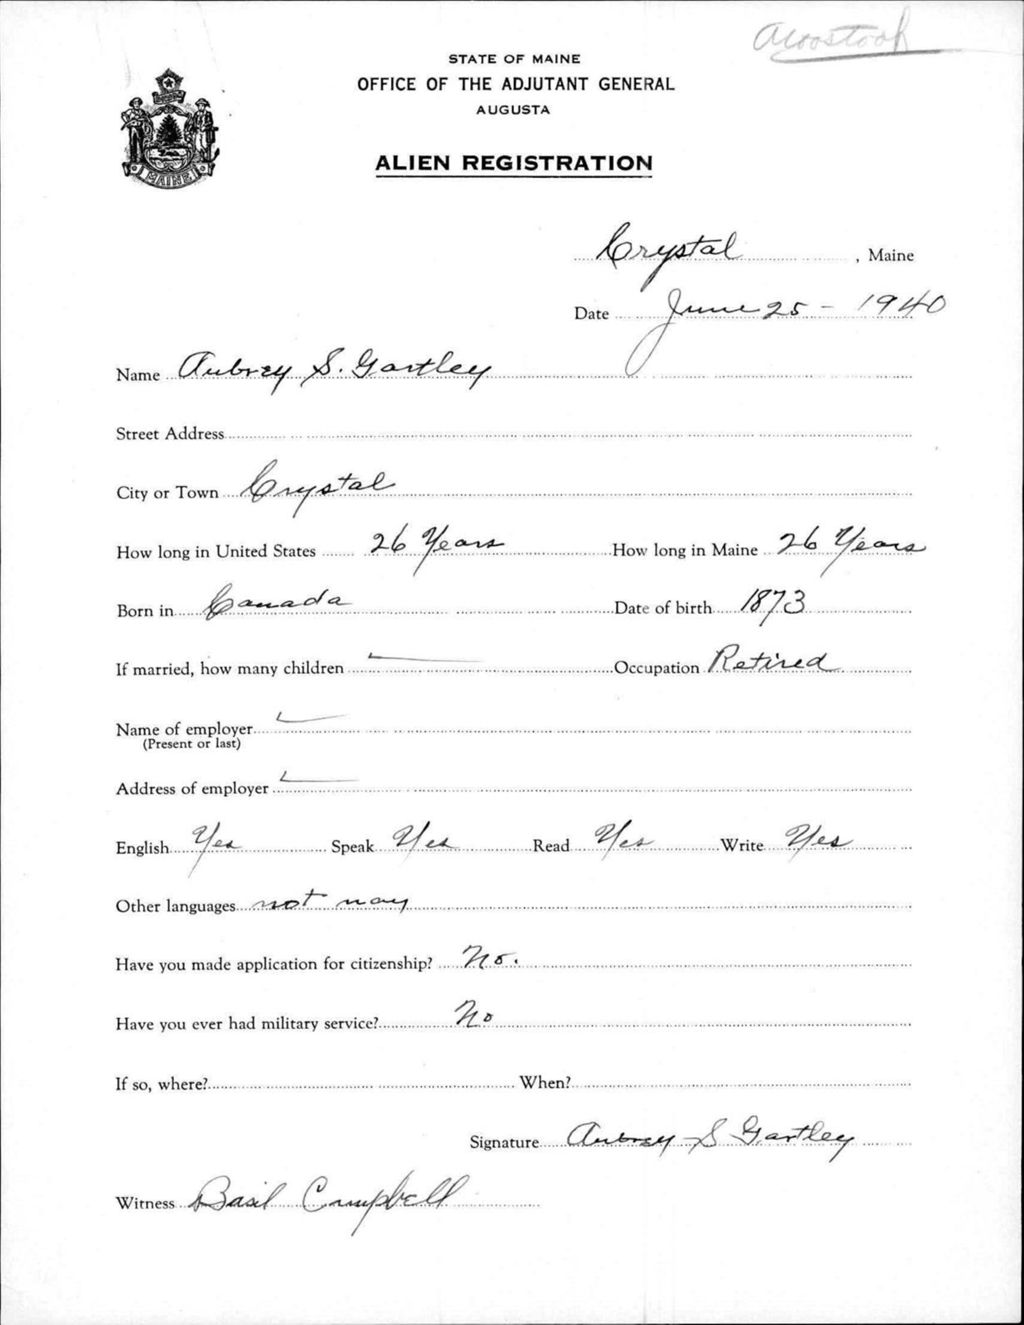 Aroostook
STATE OF MAINE
OFFICE OF THE ADJUTANT GENERAL
AUGUSTA
MAINE
ALIEN REGISTRATION
Crystal, Maine
Date June 25 - 1940
Name Aubrey S. Gartley
Street Address
City or Town Crystal
How long in United States 26 Years How long in Maine 26 Years
Born in Canada Date of birth 1873
If married, how many children Occupation Retired
Name of employer
(Present or last)
Address of employer
English Yes Speak Yes Read Yes Write Yes
Other languages not
Have you made application for citizenship? No.
Have you ever had military service? No
If so, where? When?
Signature Aubrey S Gartley
Witness Basil Campbell